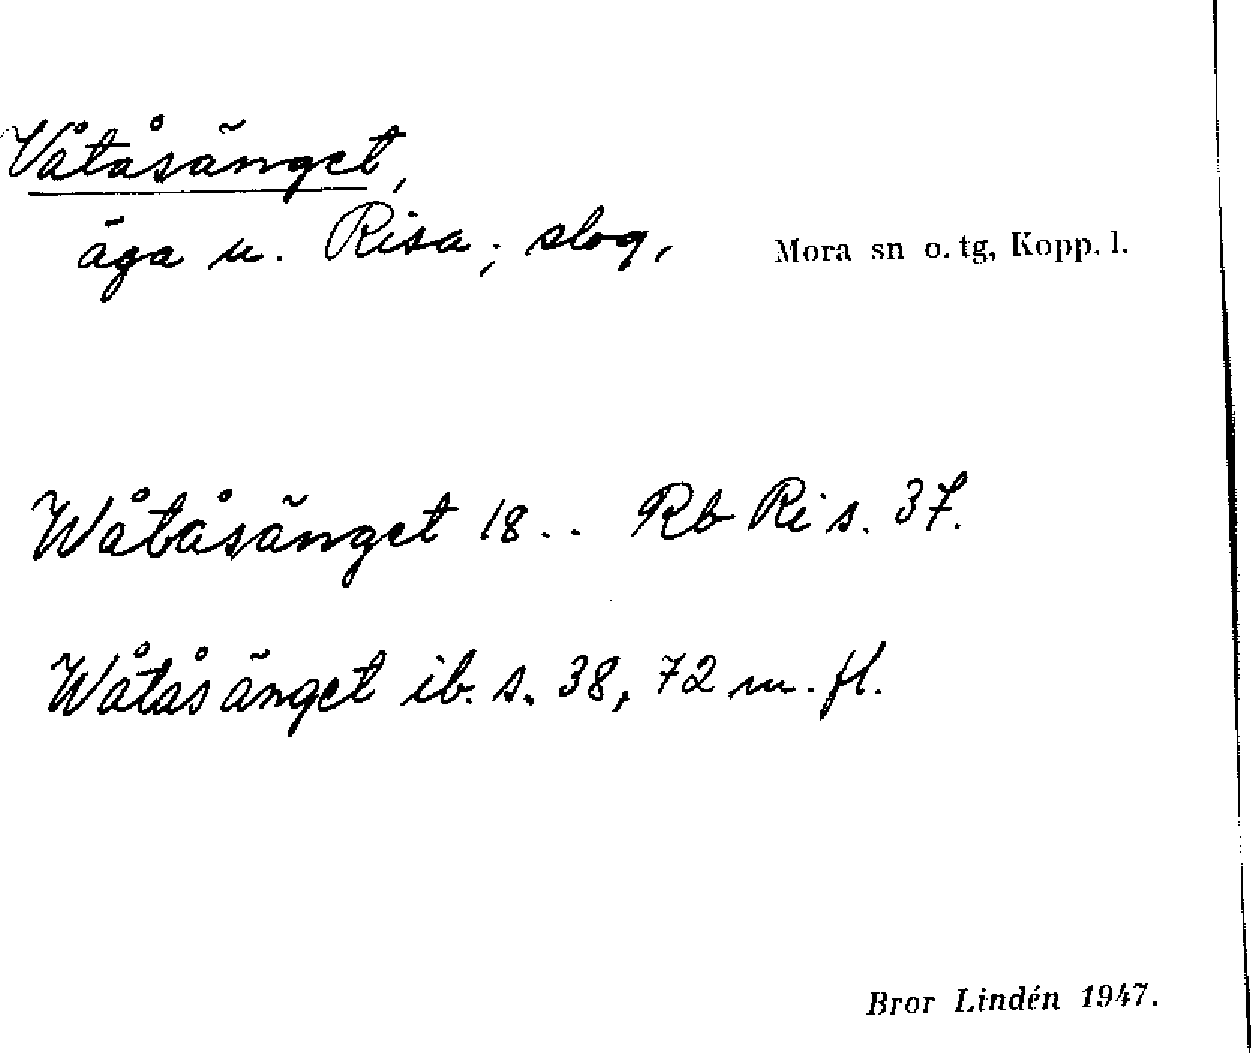 Våtåsänget,
äga u. Risa; slog, Mora sn o. tg, Kopp. l.
Wåtåsänget 18.. Rb Ri s. 37.
Wåtåsänget ib. s. 38, 72 m. fl.
Bror Lindén 1947.